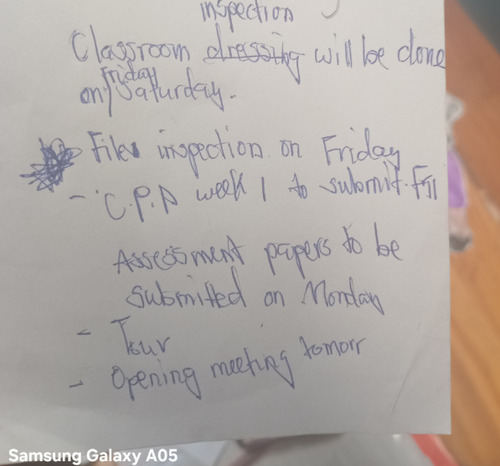 inspection
Classroom dressing will be done
Friday
on/Saturday.
File inspection on Friday
- C.P.D week 1 to submit. Fri
Assessment papers to be
submitted on Monday
- Tour
- Opening meeting tomorr
Samsung Galaxy A05